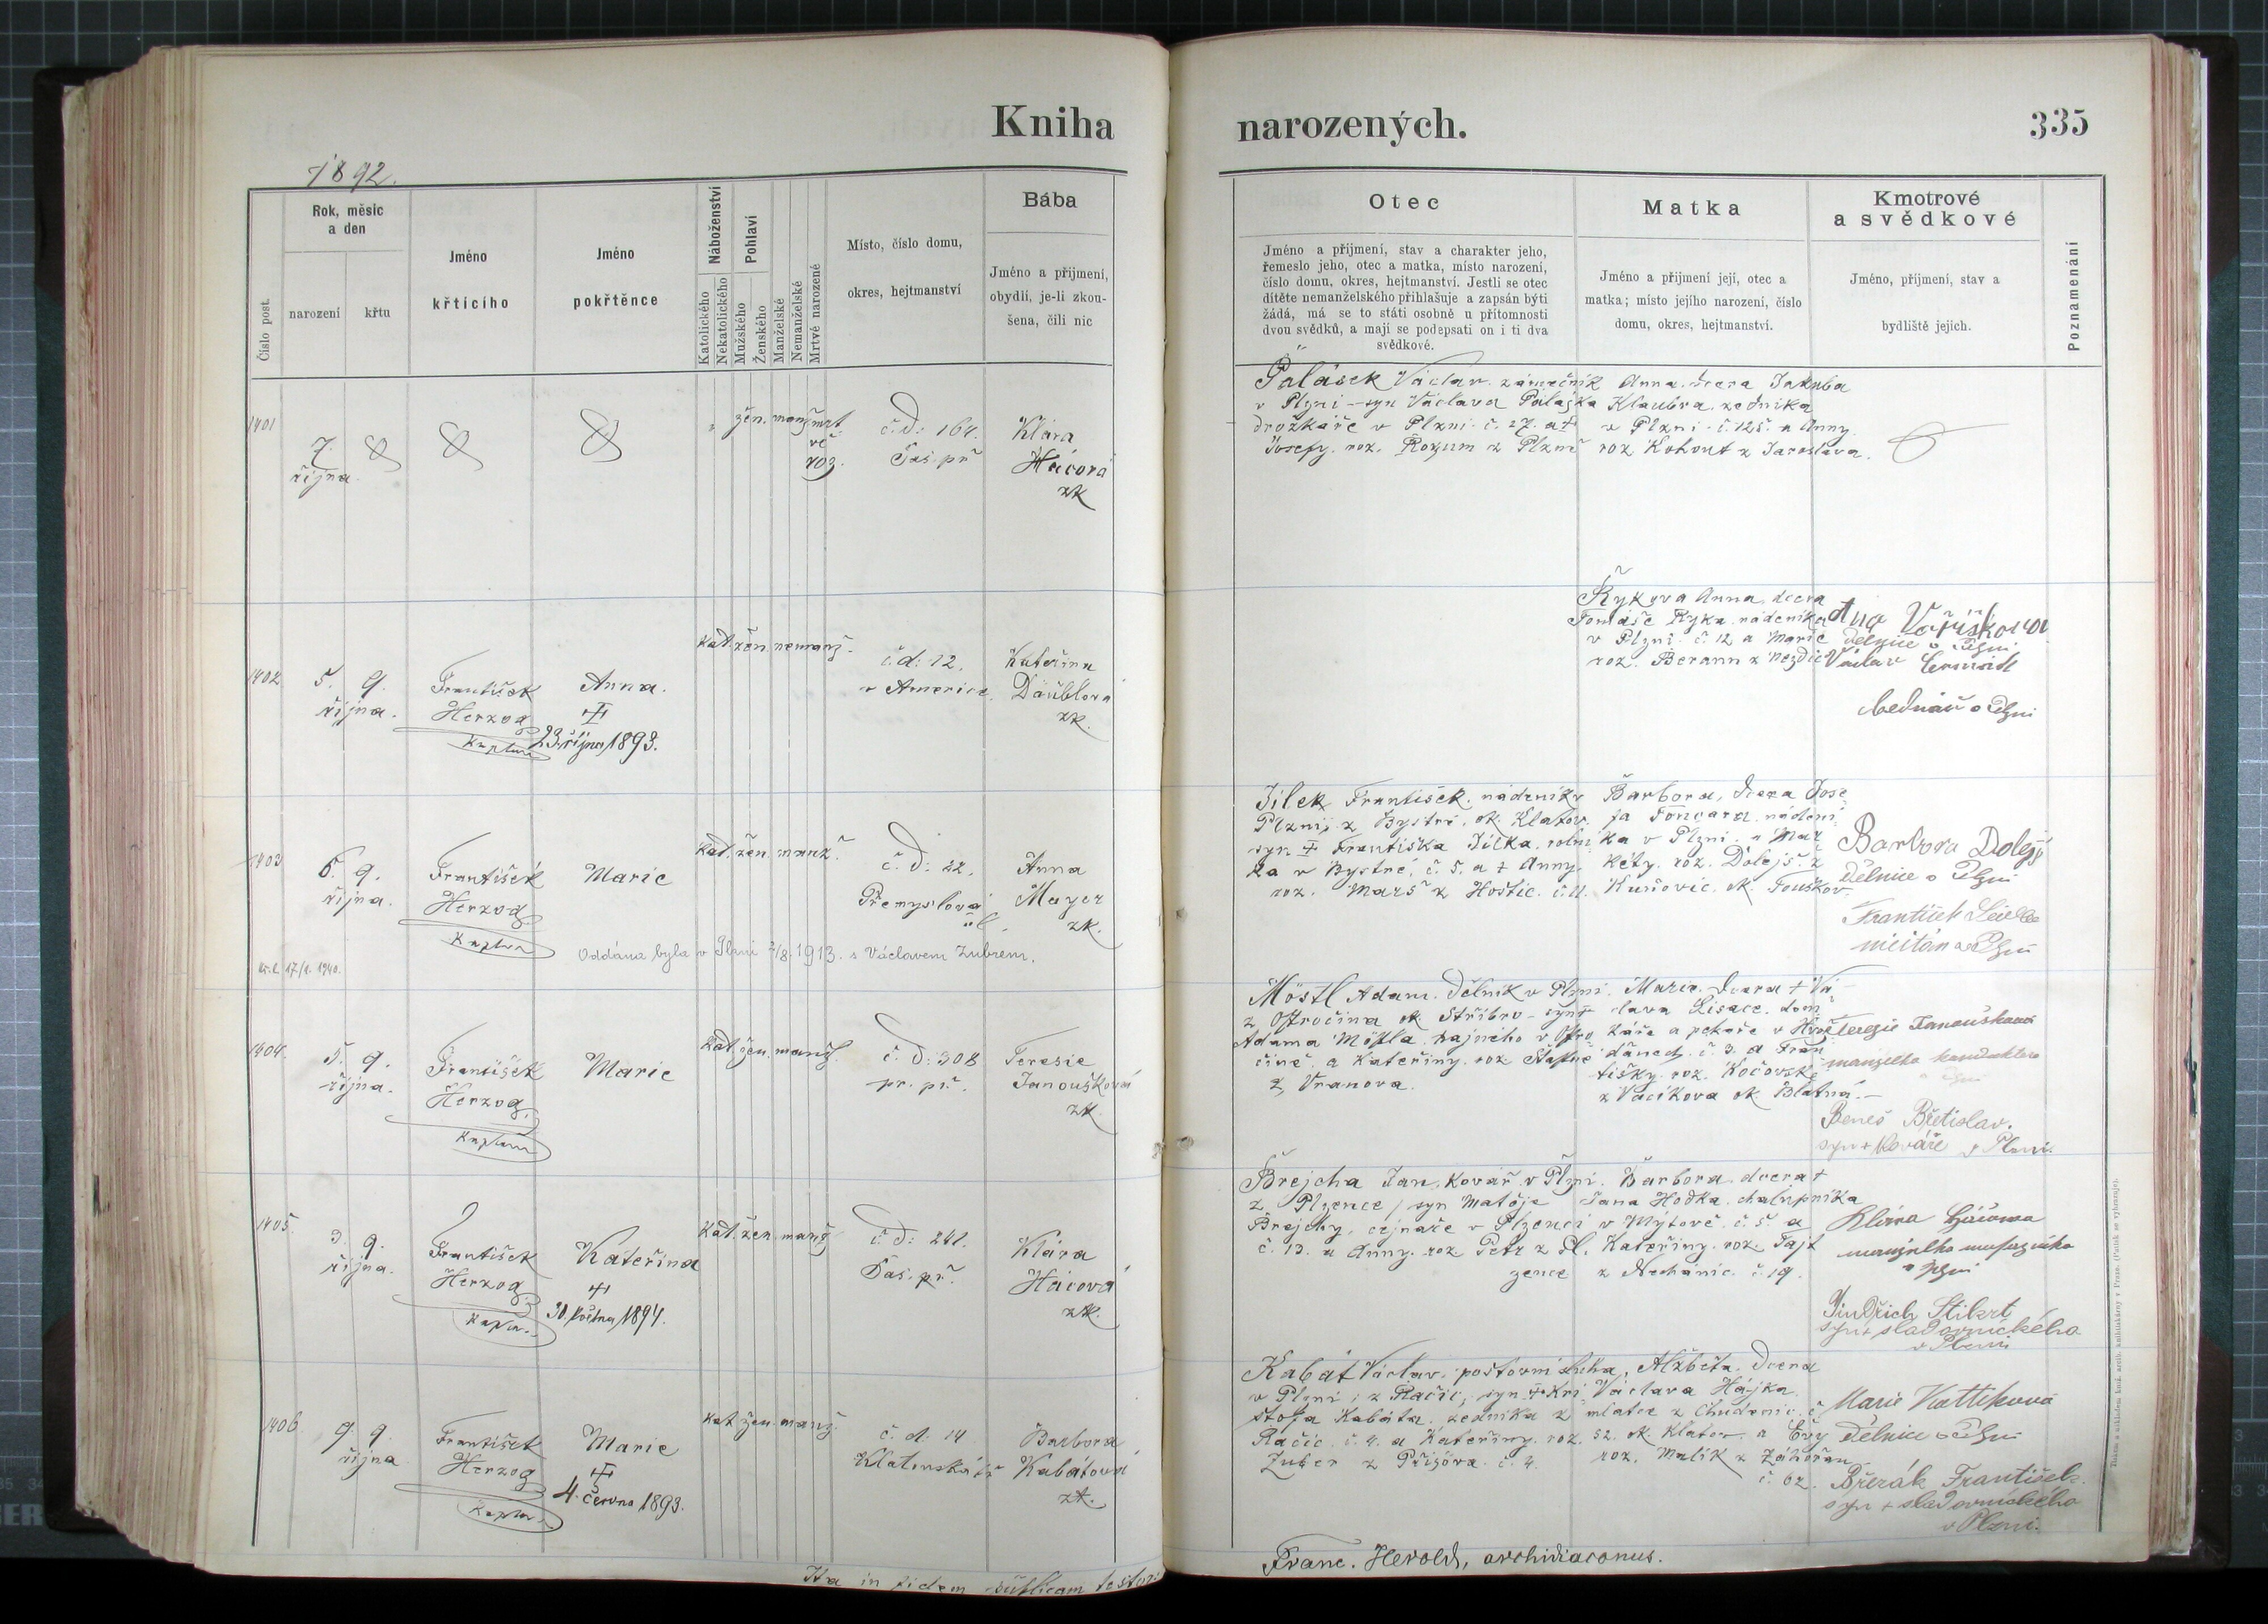 Kniha
narozených.
335
1892.
Číslo post.
Rok, měsíc
a den
narození
křtu
Jméno
křtícího
Jméno
pokřtěnce
Náboženství
Katolického
Nekatolického
Pohlaví
Mužského
Ženského
Manželské
Nemanželské
Mrtvé narozené
Místo, číslo domu,
okres, hejtmanství
Bába
Jméno a příjmení,
obydlí, je-li zkou-
šena, čili nic
Otec
Jméno a příjmení, stav a charakter jeho,
řemeslo jeho, otec a matka, místo narození,
číslo domu, okres, hejtmanství. Jestli se otec
dítěte nemanželského přihlašuje a zapsán býti
žádá, má se to státi osobně u přítomnosti
dvou svědků, a mají se podepsati on i ti dva
svědkové.
Matka
Jméno a příjmení její, otec a
matka; místo jejího narození, číslo
domu, okres, hejtmanství.
Kmotrové
a svědkové
Jméno, příjmení, stav a
bydliště jejich.
Poznamenání
1401
7.
října.
žen. manž. mrt
vě
roz.
č. d: 164.
Sas. př
Klára
Hácová
zk
Palásek Václav. zámečník
v Plzni - syn Václava Palaska
drožkáře v Plzni. č. 27. a †
Josefy. roz. Rozum z Plzně
Anna. dcera Jakuba
Klaubra. zedníka
v Plzni. č. 125. a Anny
roz Kohout z Jaroslava.
1402
5. 9.
října.
František
Herzog
Kaplan
Anna.
†
23. října 1893.
kat. žen. nemanž.
č. d: 12.
v Americe.
Kateřina
Däublová
zk.
Rykova Anna, dcera
Tomáše Ryka. nádeníka
v Plzni. č. 12 a Marie
roz. Berann z Nezdic
Vořiškova
dělnice v Plzni.
Václav Čermák
bednář v Plzni
1403
6. 9.
října.
František
Herzog
Kaplan
Marie
kat. žen. manž.
č. d: 22.
Přemyslová
ul.
Anna
Mayer
zk.
Oddána byla v Plzni 2/8. 1913. s Václavem Zubrem.
17/1. 1940.
Jílek František. nádeník v
Plzni; z Bystré. ok. Klatov.
syn † Františka Jílka. rolní
ka v Bystré, č. 5. a † Anny
roz. Marš z Hoštic. č. 11.
Barbora, dcera Jose
fa Foncara. nádení
ka v Plzni. a Mar
kéty. roz. Dolejš. z
Kunovic. ok. Touškov
Barbora Dolejš
dělnice v Plzni
František
v Plzni
1404.
5. 9.
října.
František
Herzog
Kaplan
Marie
kat. žen. manž.
č. d: 308
pr. př.
Teresie
Janoušková
zk.
Möstl Adam. dělník v Plzni.
z Ostročina ok. Stříbro - syn †
Adama Möstla. hajného v Ostro
čině. a Kateřiny. roz
z Vranova.
Marie. dcera † Vá
clava Lisace. dom
káře a pekaře v
č. 3. a Fran
tišky. roz. Kočovské
z Vacíkova ok. Blatná.
Terezie Janoušková
manželka konduktera
Beneš Břetislav.
syn + kováře v Plzni.
1405
3. 9.
října.
František
Herzog
Kaplan
Kateřina
†
30. května 1894.
kat. žen. manž.
č. d: 241.
Sas. př.
Klára
Hácová
zk.
Brejcha Jan. kovář v Plzni.
z Plzence, syn Matěje
Brejchy, cejnaře v Plzenci
č. 13. a Anny. roz Petr z Pl.
zence
Barbora. dcera †
Jana Hodka. chalupníka
v Mýtově. č. 5. a
Kateřiny. roz. Tajt
z Nechanic. č. 19.
Klára Hácova
manželka
v Plzni
Jindřich Stikrt
syn + sladovnického
v Plzni
1406
9. 9.
října
František
Herzog
Kaplan
Marie
†
4. června 1893.
kat. žen. manž.
č. d: 14
Klatovská tř
Barbora
Kabátová
zk.
Kabát Václav. poštovní sluha,
v Plzni; z Račic; syn † Kri
štofa Kabáta. zedníka z
Račic. č. 4. a Kateřiny. roz.
Zuber z Přisova. č. 4.
Alžběta. dcera
Václava Hájka.
mlatce z Chudenic. č
52. ok. Klatov. a Evy
roz. Malík z Záhořan
č. 62.
Marie Kottiková
dělnice v Plzni
Březák František
syn + sladovnického
v Plzni.
Ita in fidem publicam testor
Franc. Herold, archidiaconus.